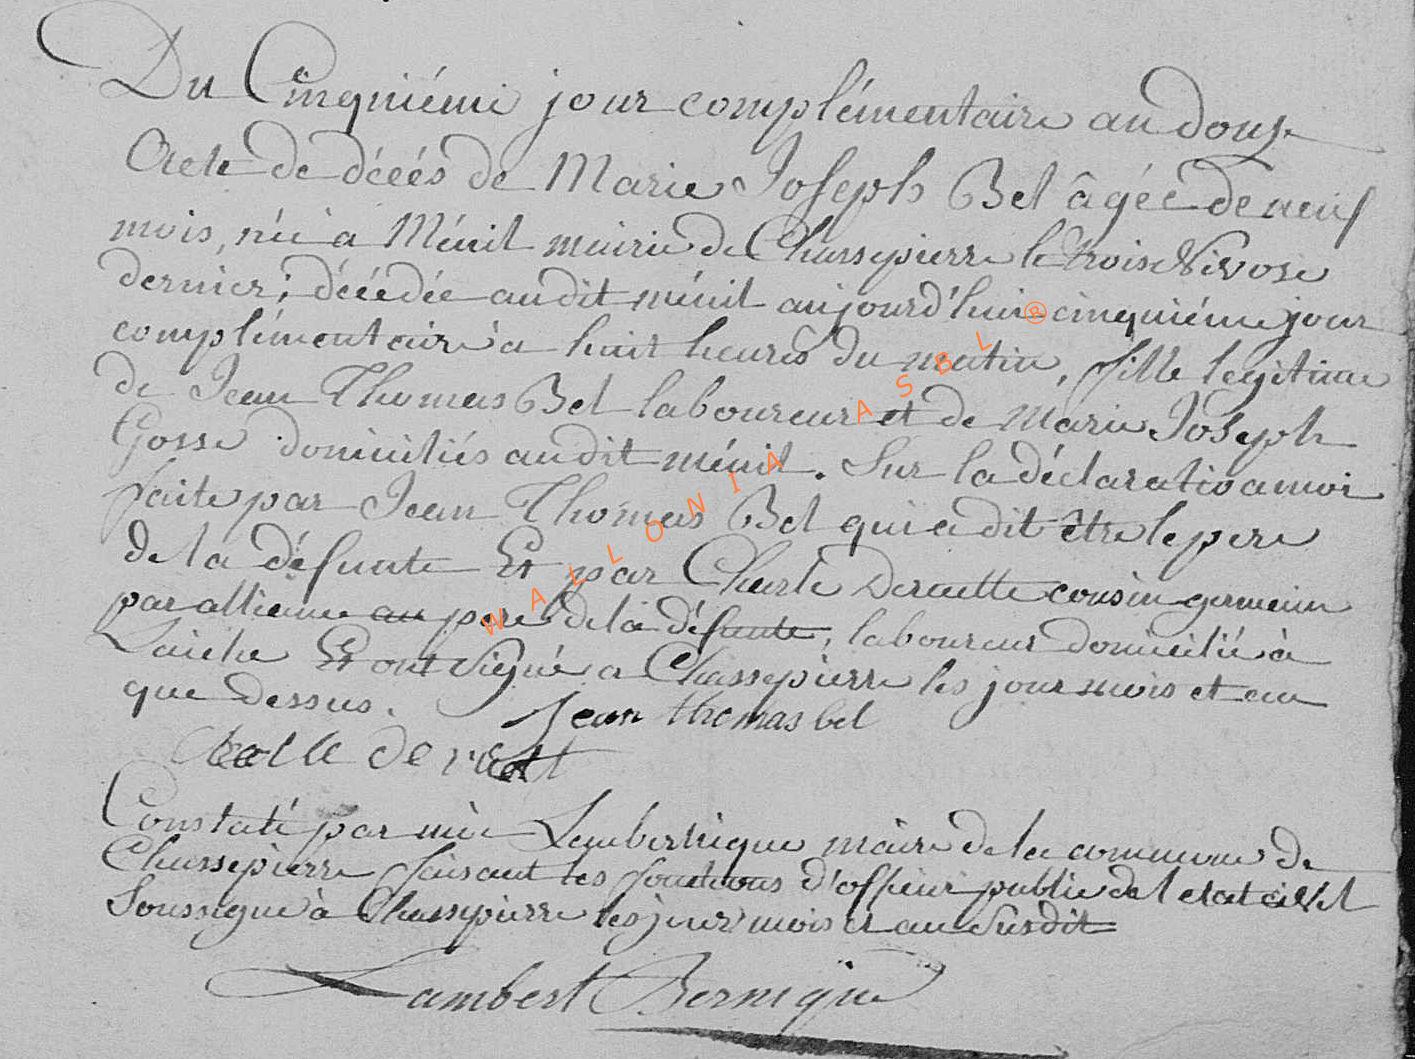 Du Cinquiéme jour complémentaire an douze
Acte de décés de Marie Joseph Bel âgée de neuf
mois, née a Ménil mairie de Chassepierre le trois Nivose
dernier; décédée audit ménil aujourd'hui cinquiéme jour
complémentaire à huit heures du matin, fille legitime
de Jean Thomas Bel laboureur et de Marie Joseph
Gosse domiciliés audit ménil. Sur la déclaration a moi
faite par Jean Thomas Bel qui a dit être le pere
de la défunte Et par Charle cousin germain
par alliance au pere de la défunte, laboureur domicilié à
Laiche Et ont signé a Chassepierre les jour mois et an
que dessus.
Jean thomas bel
Constaté par mòi maire de la commune de
Chassepierre faisant les fonctions d'officier public de l etat civil
Soussigné à Chassepierre les jour mois et an susdit
Lambert Bernique
WALLONIA ASBL ®